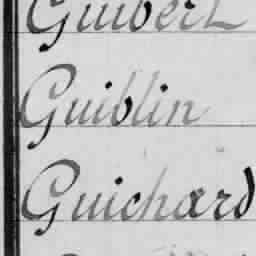 Guibert
Guiblin
Guichard